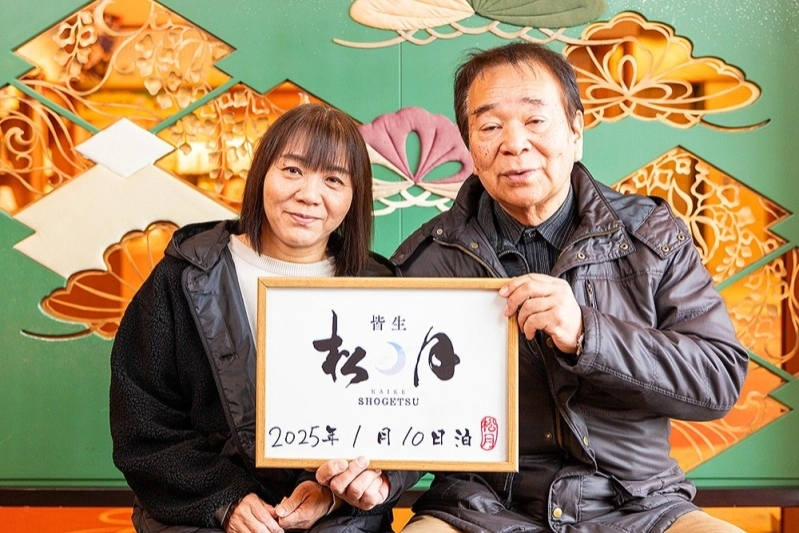 皆生
松月
KAIKE
SHOGETSU
2025年1月10日泊
松月